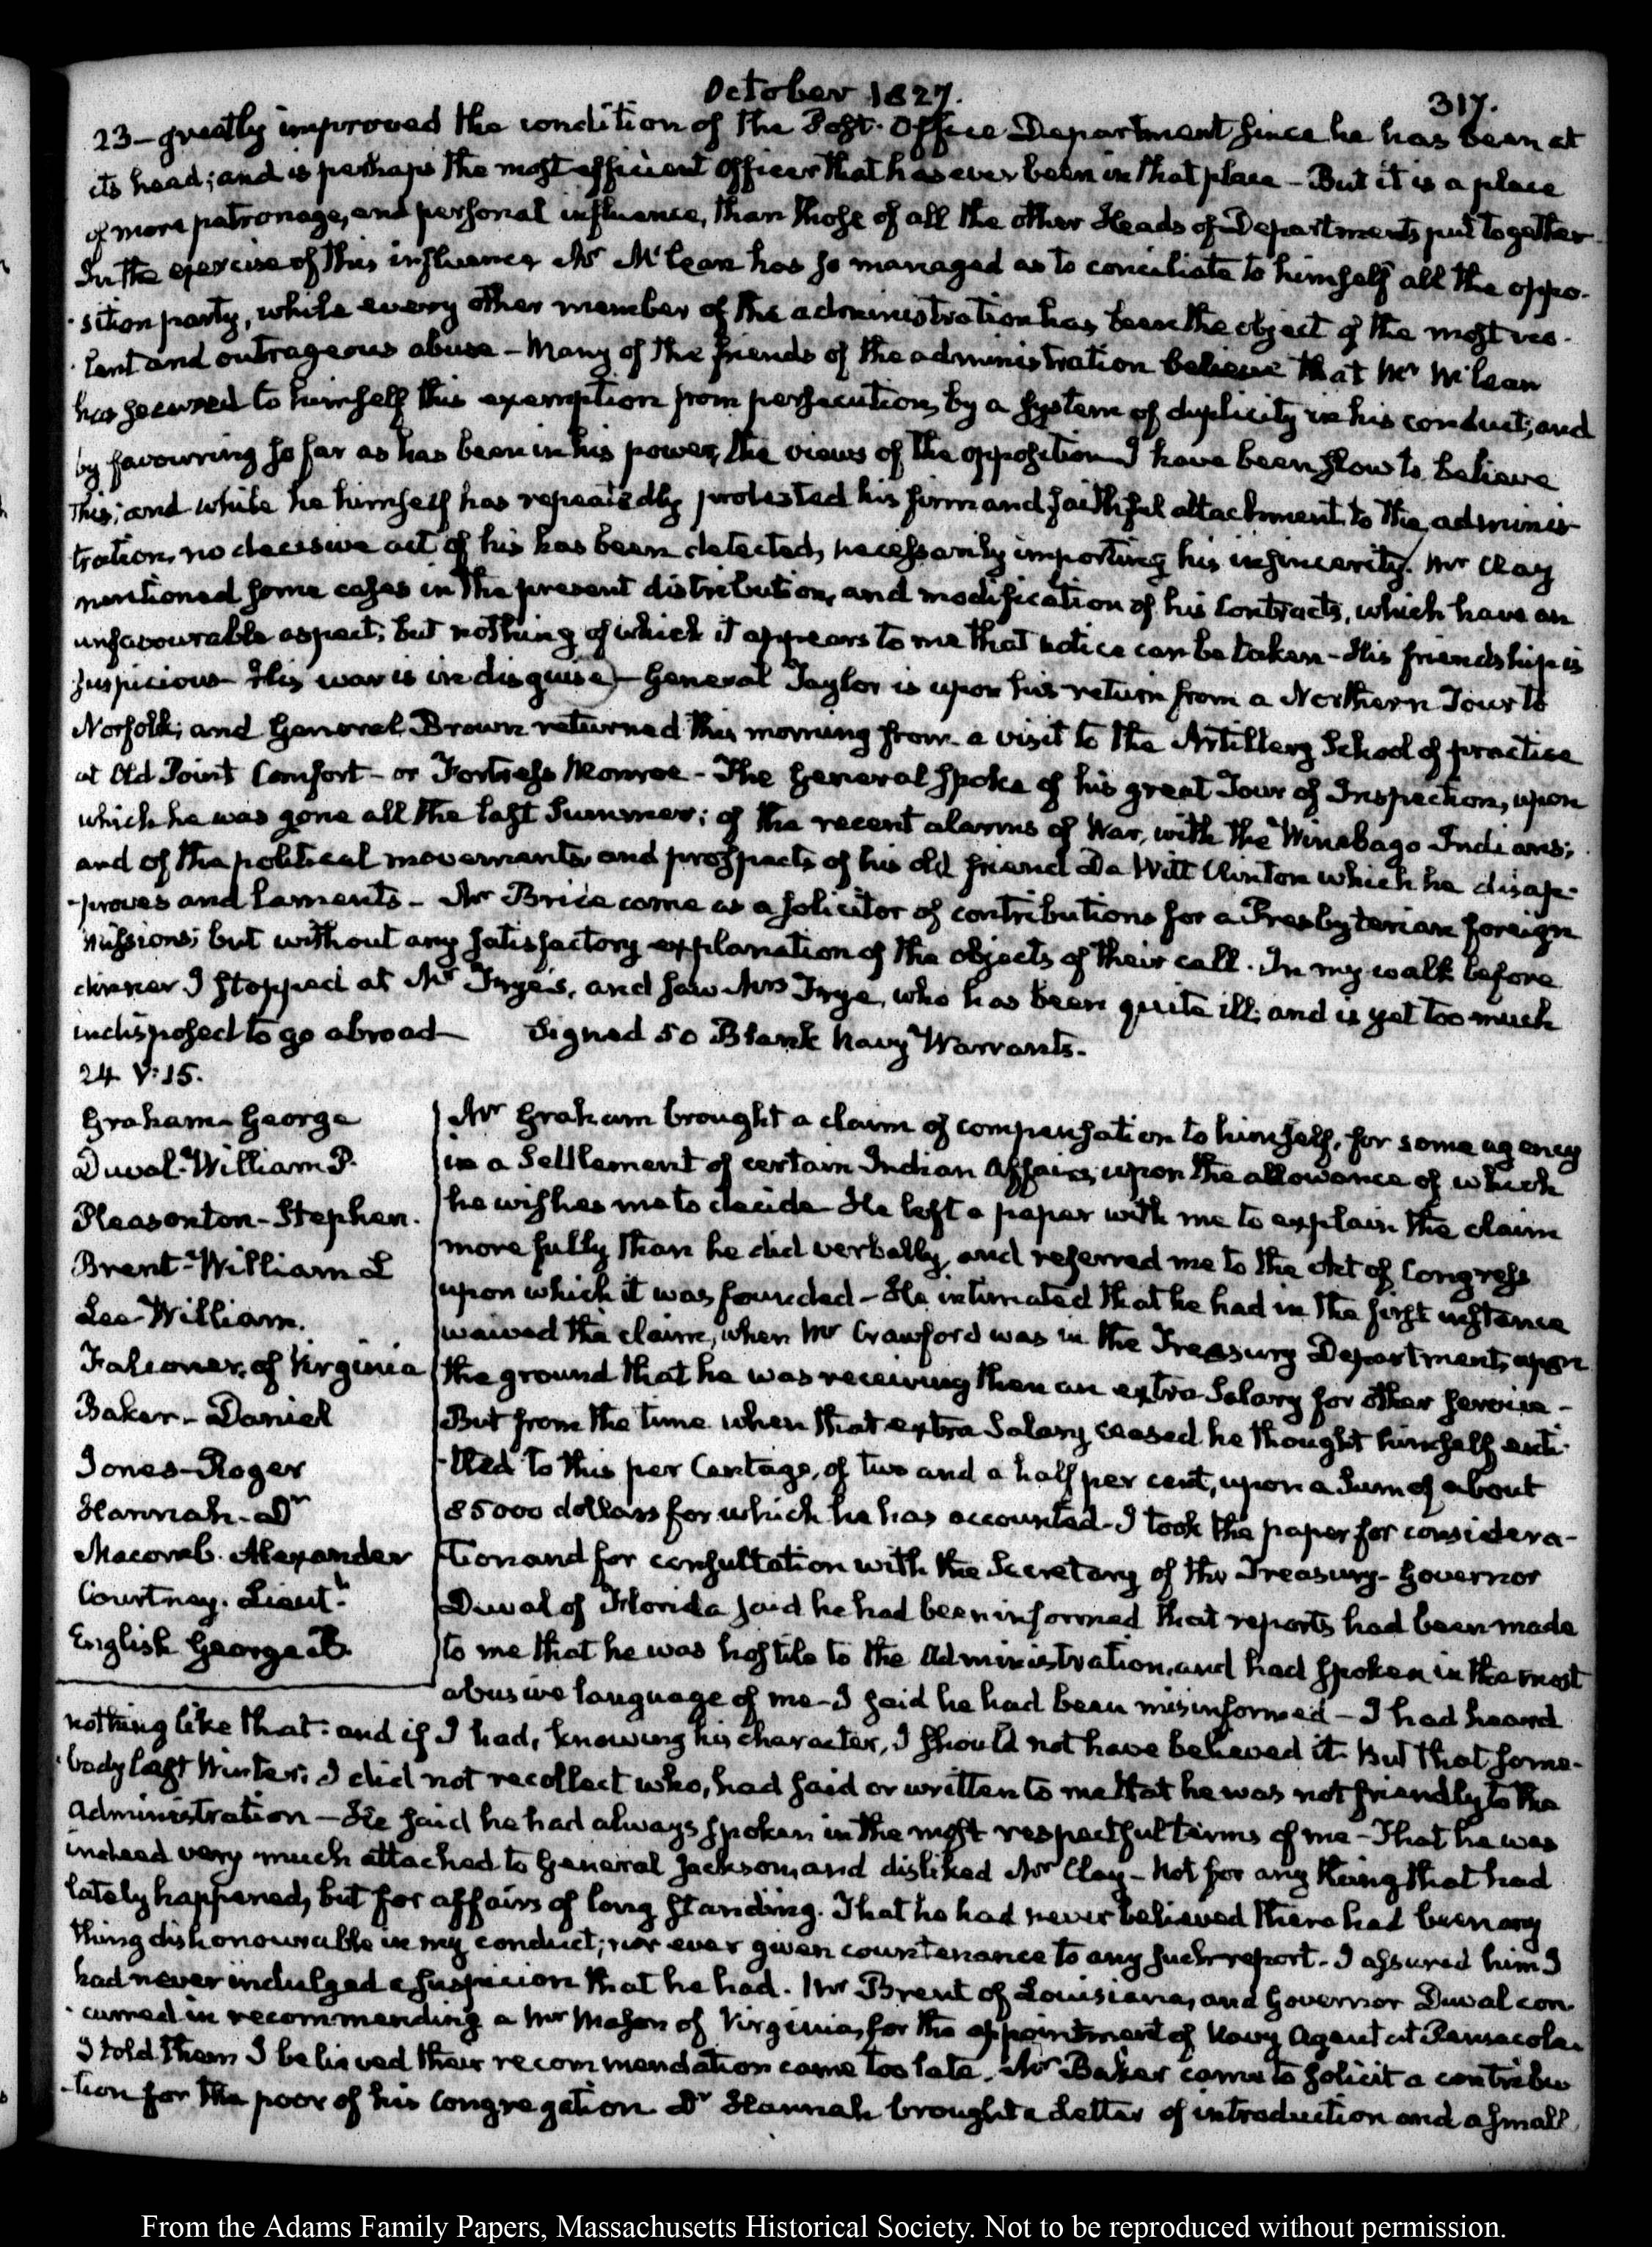 October 1827.
317.
23 — greatly improved the condition of the Post-Office Department since he has been at
its head; and is perhaps the most efficient officer that has ever been in that place — But it is a place
of more patronage, and personal influence, than those of all the other Heads of Departments put together.
In the exercise of this influence Mr McLean has so managed as to conciliate to himself all the oppo-
-sition party, while every other member of the administration has been the object of the most vio-
-lent and outrageous abuse — Many of the friends of the administration believe that Mr McLean
has secured to himself this exemption from persecution, by a system of duplicity in his conduct; and
by favouring so far as has been in his power, the views of the opposition. I have been slow to believe
this; and while he himself has repeatedly protested his firm and faithful attachment to the adminis-
tration, no decisive act of his has been detected, necessarily importing his insincerity. Mr Clay
mentioned some cases in the present distribution, and modification of his Contracts, which have an
unfavourable aspect; but nothing of which it appears to me that notice can be taken — His friendship is
suspicious — His war is in disguise — General Taylor is upon his return from a Northern Tour to
Norfolk; and General Brown returned this morning from a visit to the Artillery School of practice
at Old Point Comfort — or Fortress Monroe — The General spoke of his great Tour of Inspection, upon
which he was gone all the last Summer; of the recent alarms of War, with the Winebago Indians;
and of the political movements and prospects of his old friend De Witt Clinton which he disap-
-proves and laments — Mr Brice came as a solicitor of contributions for a Presbyterian foreign
missions; but without any satisfactory explanation of the objects of their call. In my walk before
dinner I stopped at Mr Frye's, and saw Mrs Frye, who has been quite ill; and is yet too much
indisposed to go abroad — Signed 50 Blank Navy Warrants.
24 V:15.
Graham — George
Duval — William P.
Pleasonton — Stephen.
Brent — William L
Lee — William.
Falconer, of Virginia
Baker — Daniel
Jones — Roger
Hannah — Dr
Macomb. Alexander
Courtney. Lieutt
English George B.
Mr Graham brought a claim of compensation to himself, for some agency
in a Settlement of certain Indian Affairs, upon the allowance of which
he wishes me to decide — He left a paper with me to explain the claim
more fully than he did verbally, and referred me to the Act of Congress
upon which it was founded — He intimated that he had in the first instance
waived the claim, when Mr Crawford was in the Treasury Department, upon
the ground that he was receiving then an extra Salary for other service —
But from the time when that extra Salary ceased he thought himself enti-
-tled to this per Centage, of two and a half per cent, upon a Sum of about
85000 dollars for which he has accounted — I took the paper for considera-
tion and for consultation with the Secretary of the Treasury — Governor
Duval of Florida said he had been informed that reports had been made
to me that he was hostile to the Administration, and had spoken in the most
abusive language of me — I said he had been misinformed — I had heard
nothing like that: and if I had, knowing his character, I should not have believed it. But that some-
-body last Winter, I did not recollect who, had said or written to me that he was not friendly to the
Administration — He said he had always spoken in the most respectful terms of me — That he was
indeed very much attached to General Jackson, and disliked Mr Clay — Not for any thing that had
lately happened, but for affairs of long standing. That he had never believed there had been any
thing dishonourable in my conduct; nor ever given countenance to any such report — I assured him I
had never indulged a suspicion that he had. Mr Brent of Louisiana, and Governor Duval con-
-curred in recommending a Mr Mason of Virginia, for the appointment of Navy Agent at Pensacola.
I told them I believed their recommendation came too late. Mr Baker came to solicit a contribu-
-tion for the poor of his Congregation Dr Hannah brought a Letter of introduction and a small
From the Adams Family Papers, Massachusetts Historical Society. Not to be reproduced without permission.